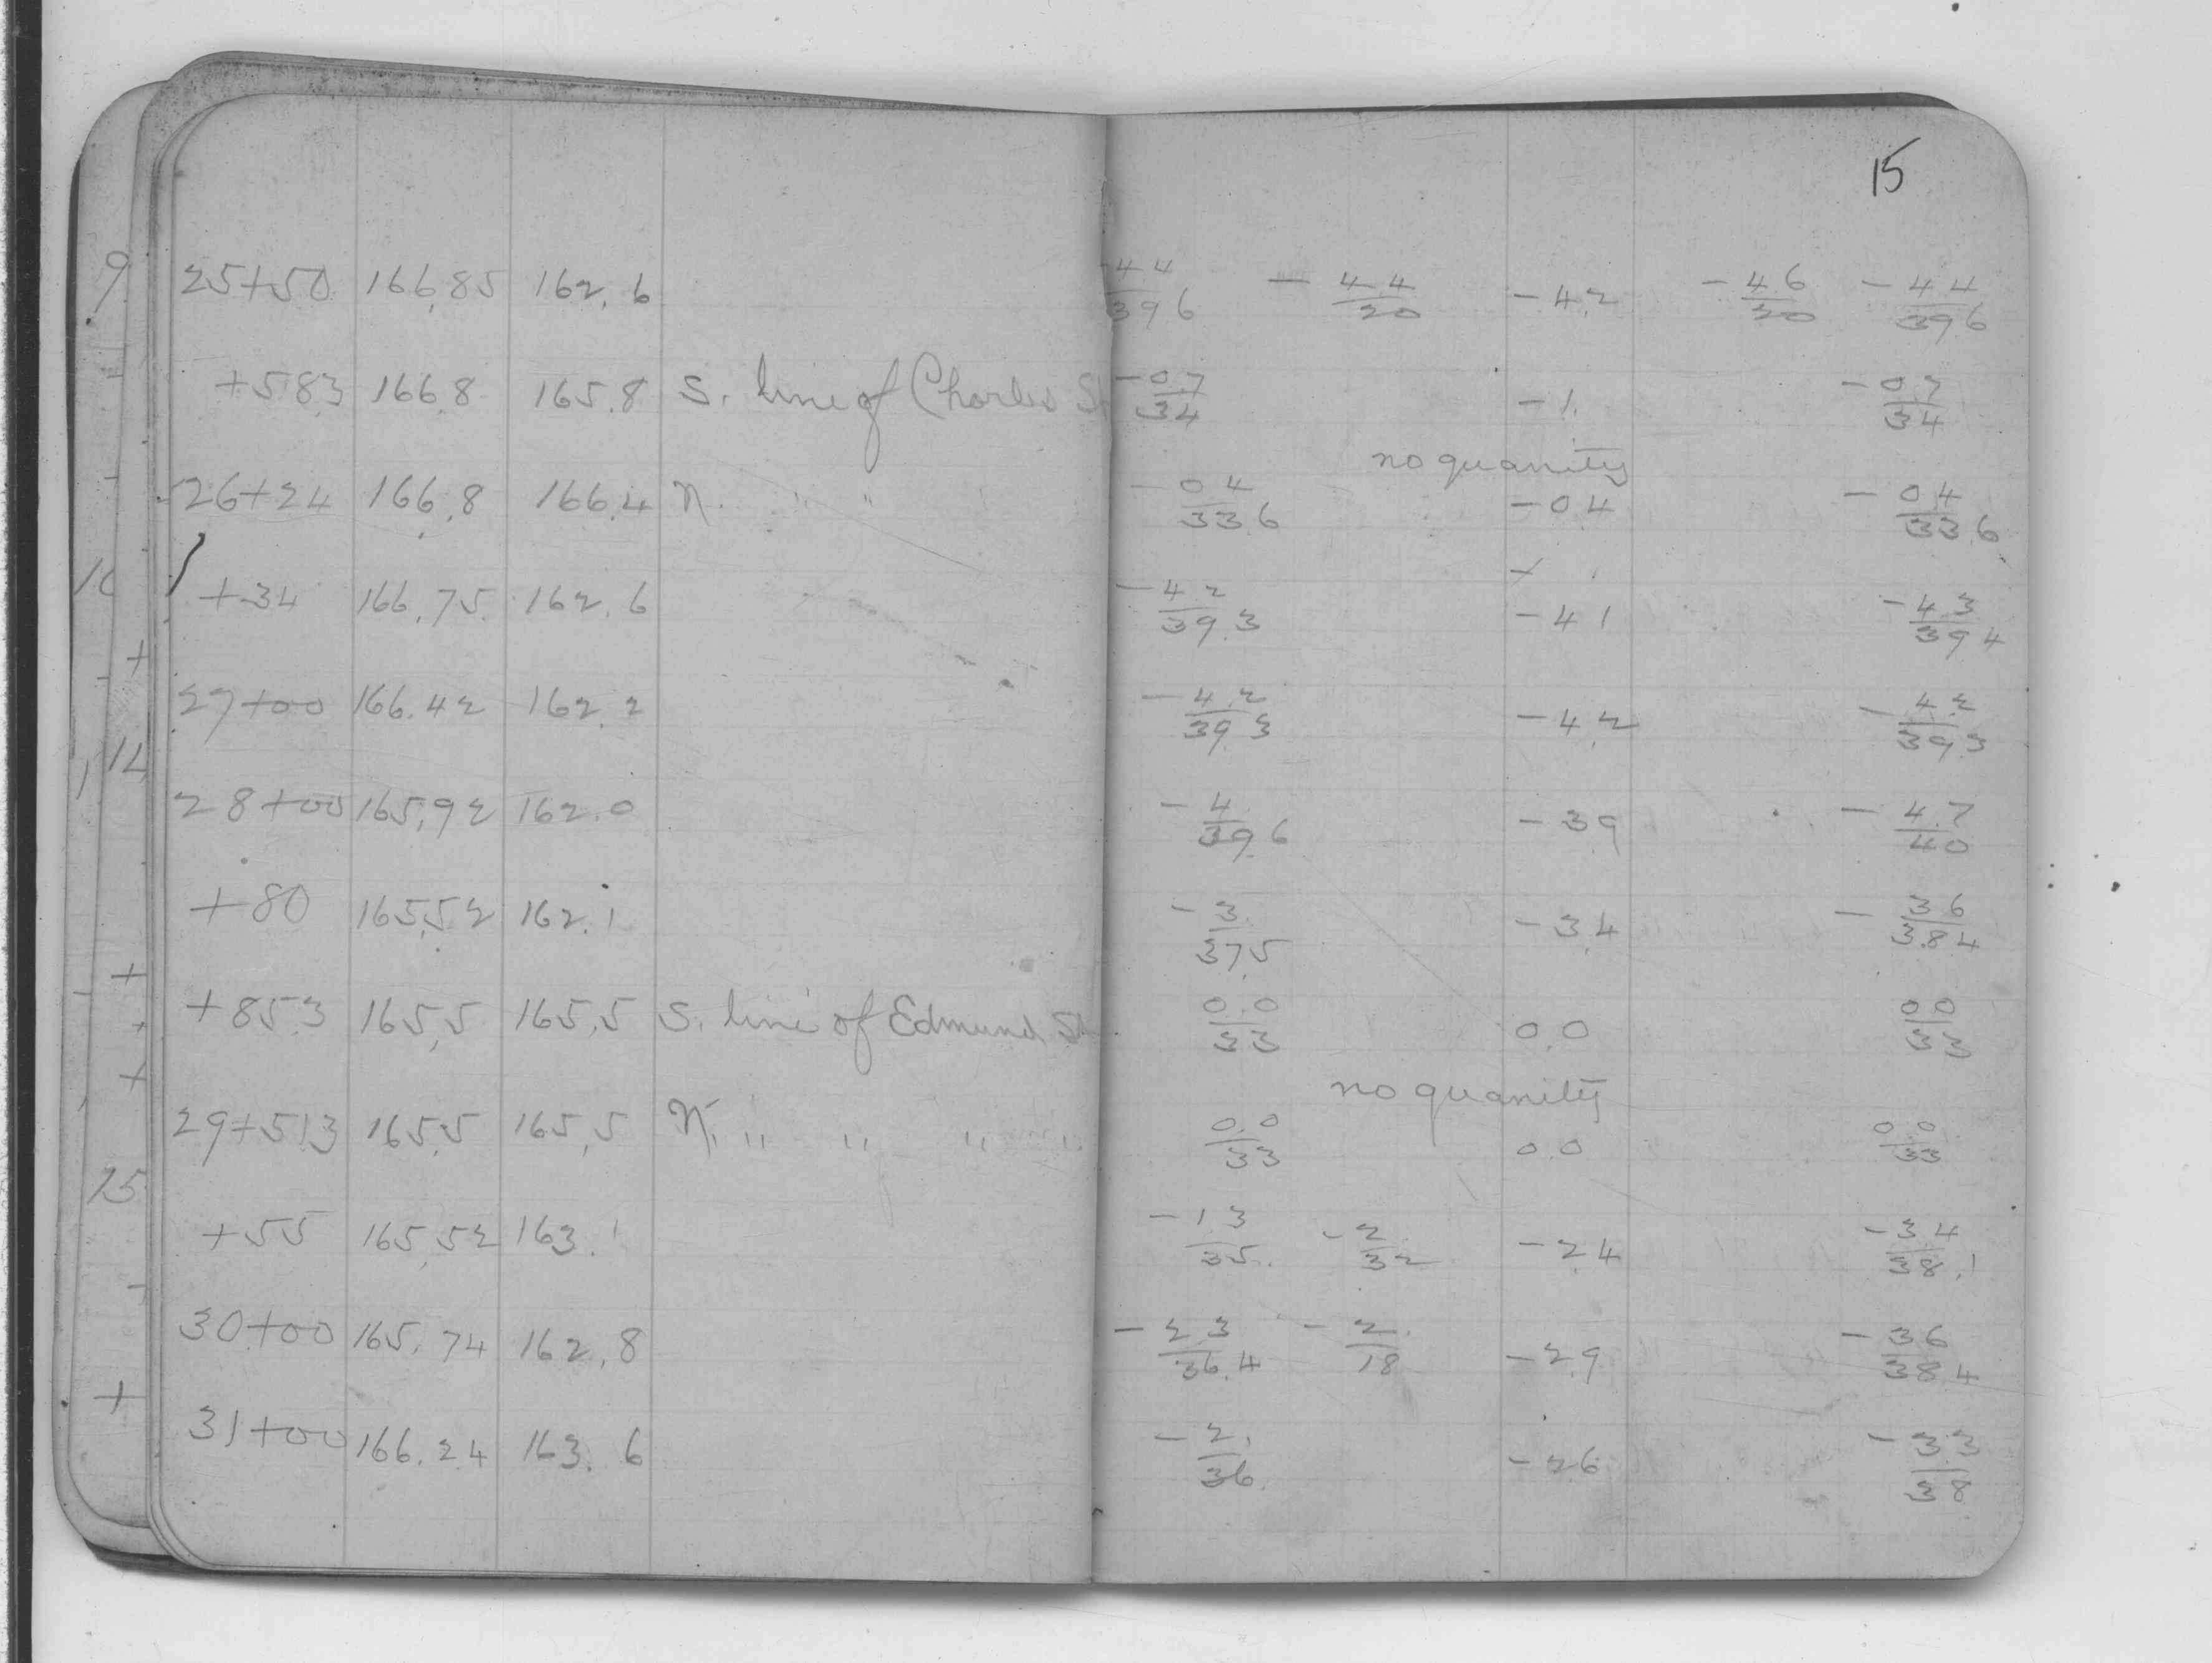 15
25+50 166.85 162.6 -4.4/39.6 -4.4/20 -4.2 -4.6/20 -4.4/39.6
+58.3 166.8 165.8 S. line of Charles St -0.7/34 -1. -0.7/34
no quanity
26+24 166.8 166.4 N. " " -0.4/33.6 -0.4 -0.4/33.6
+34 166.75 162.6 -4.2/39.3 -4.1 -4.3/39.4
27+00 166.42 162.2 -4.2/39.3 -4.2 -4.2/39.3
28+00 165.92 162.0 -4/39.6 -3.9 -4.7/40
+80 165.52 162.1 -3./37.5 -3.4 -3.6/38.4
+85.3 165.5 165.5 S. line of Edmund St 0.0/33 0.0 0.0/33
no quanity
29+51.3 165.5 165.5 N. " " " " 0.0/33 0.0 0.0/33
+55 165.52 163.1 -1.3/35. -2./32 -2.4 -3.4/38.1
30+00 165.74 162.8 -2.3/36.4 -2./18 -2.9 -3.6/38.4
31+00 166.24 163.6 -2./36. -2.6 -3.3/38